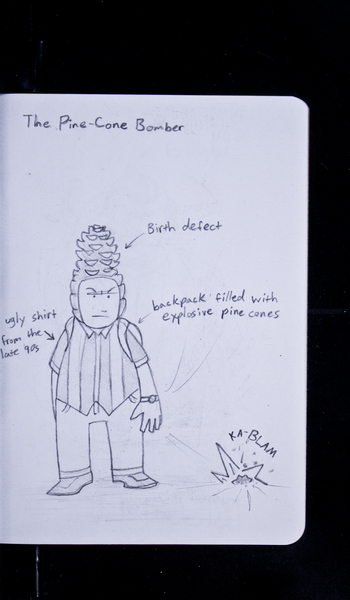 The Pine-Cone Bomber
Birth defect
backpack filled with
explosive pine cones
ugly shirt
from the
late 90s
KA-BLAM